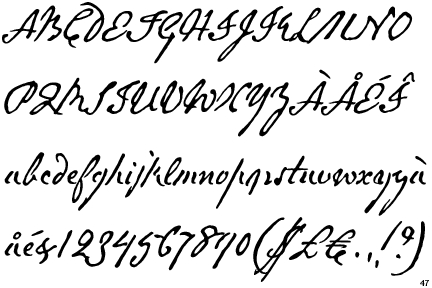 ABCDEFGHIJKLMNO
PQRSTUVWXYZÀÅÉÎ
abcdefghijklmnopqrstuvwxyzà
åé&1234567890($£€.,!?)
47